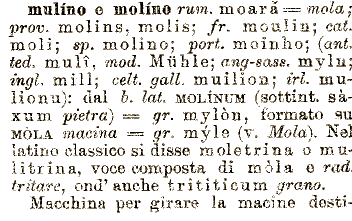 mulíno e molíno rum. moară = mola;
prov. molins, molis; fr. moulin; cat.
molí; sp. molino; port. moinho; (ant.
ted. mulî, mod. Mühle; ang-sass. myln;
ingl. mill; celt. gall. muilion; irl. mu-
lionu): dal b. lat. MOLÍNUM (sottint. sà-
xum pietra) = gr. mylòn, formato su
MÒLA macina = gr. mýle (v. Mola). Nel
latino classico si disse moletrina o mu-
litrina, voce composta di mòla e rad.
tritare, ond' anche trititicum grano.
Macchina per girare la macine desti-